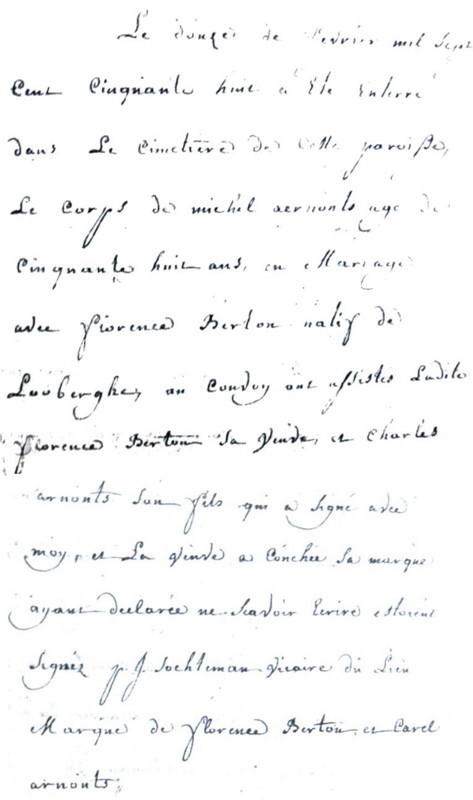 Le douze de fevrier mil sept
Cent Cinquante huit a Eté Enterré
dans Le Cimetiere de Cette paroisse,
Le Corps de michel aernonts agé de
Cinquante huit ans, en Mariage
avec florence Berton natif de
Looberghe, au Convoy ont assistes Ladite
florence Berton sa veuve, et Charles
arnonts son fils qui a signé avec
moy, et La veuve a Couchée sa marque
ayant declarée ne Scavoir Ecrire estoient
Signéz p J Sochteman vicaire du Lieu
Marque de florence Berton et Carel
arnonts,